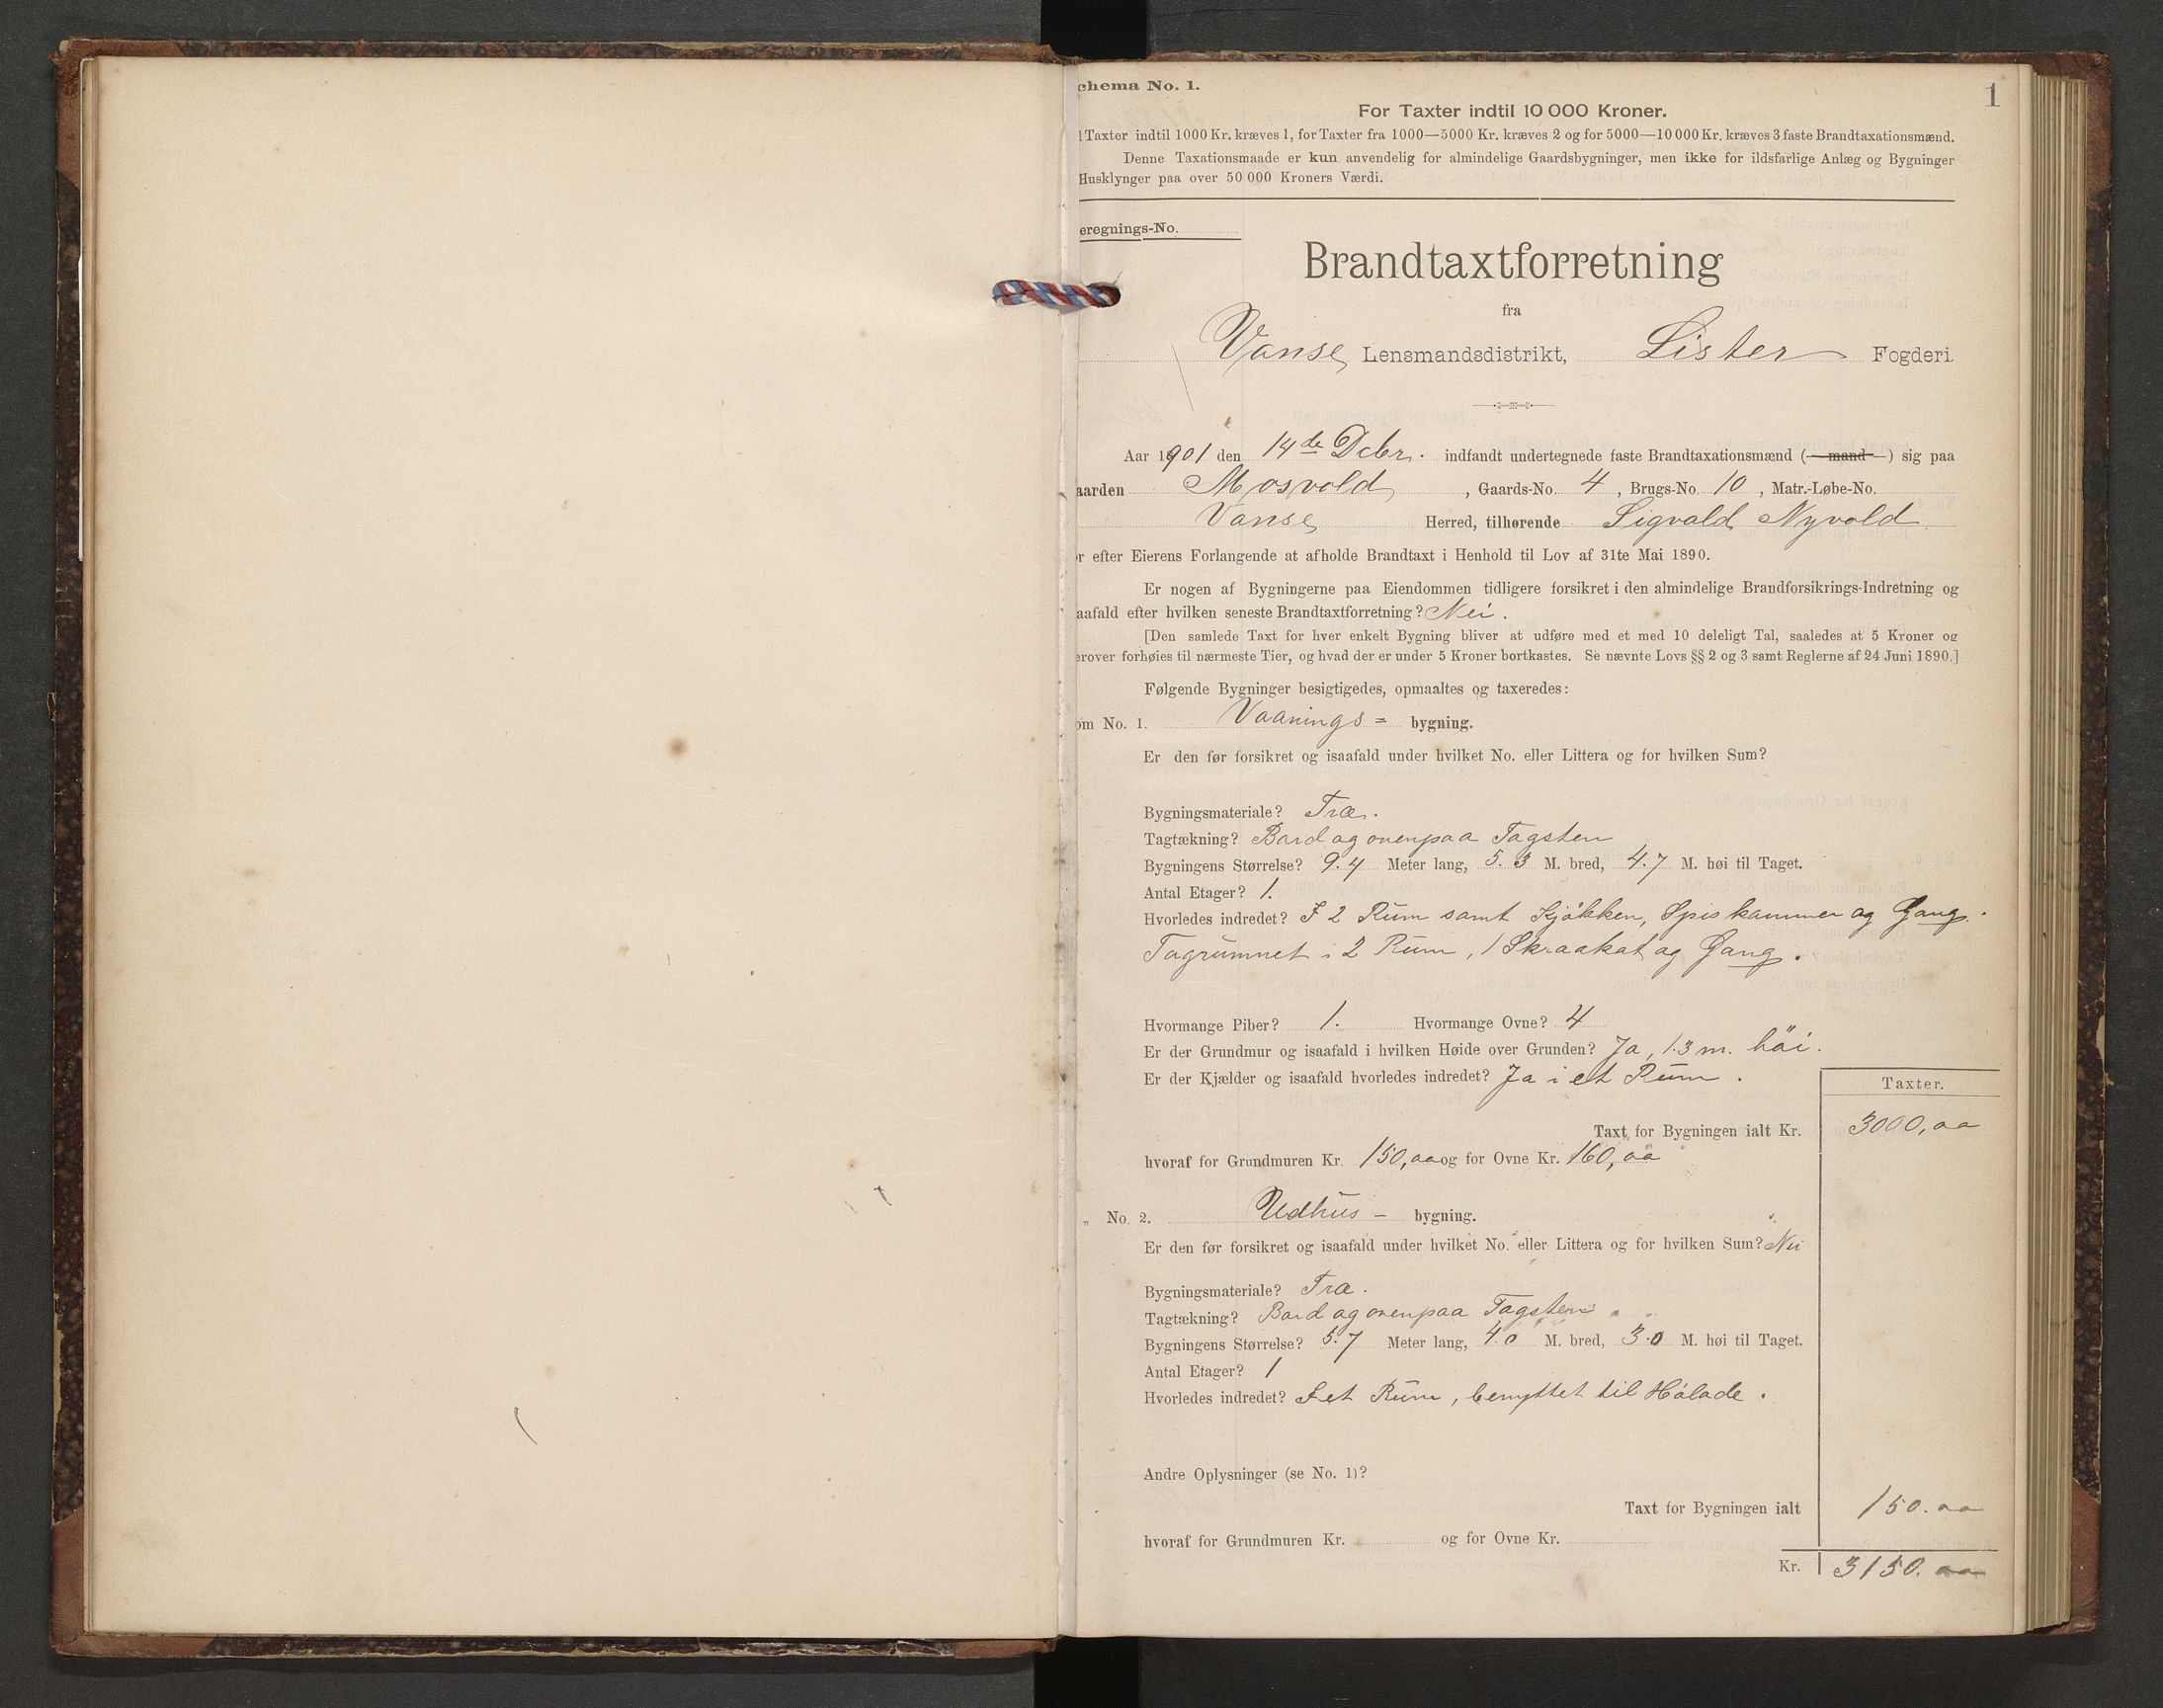 chema No. 1.
1
For Taxter indtil 10 000 Kroner.
Taxter indtil 1000 Kr. kræves 1, for Taxter fra 1000—5000 Kr. kræves 2 og for 5000—10 000 Kr. kræves 3 faste Brandtaxationsmænd.
Denne Taxationsmaade er kun anvendelig for almindelige Gaardsbygninger, men ikke for ildsfarlige Anlæg og Bygninger
Husklynger paa over 50 000 Kroners Værdi.
eregnings-No.
Brandtaxtforretning
fra
Vanse Lensmandsdistrikt, Lister Fogderi.
Aar 1901 den 14de Dcbr. indfandt undertegnede faste Brandtaxationsmænd (—mand—) sig paa
aarden Mosvold, Gaards-No. 4, Brugs-No. 10, Matr.-Løbe-No.
Vanse Herred, tilhørende Sigvald Nyvold
r efter Eierens Forlangende at afholde Brandtaxt i Henhold til Lov af 31te Mai 1890.
Er nogen af Bygningerne paa Eiendommen tidligere forsikret i den almindelige Brandforsikrings-Indretning og
aafald efter hvilken seneste Brandtaxtforretning? Nei.
[Den samlede Taxt for hver enkelt Bygning bliver at udføre med et med 10 deleligt Tal, saaledes at 5 Kroner og
erover forhøies til nærmeste Tier, og hvad der er under 5 Kroner bortkastes. Se nævnte Lovs §§ 2 og 3 samt Reglerne af 24 Juni 1890.]
Følgende Bygninger besigtigedes, opmaaltes og taxeredes:
om No. 1. Vaanings = bygning.
Er den før forsikret og isaafald under hvilket No. eller Littera og for hvilken Sum?
Bygningsmateriale? Træ.
Tagtækning? Bord og ovenpaa Tagsten
Bygningens Størrelse? 9.4 Meter lang, 5.3 M. bred, 4.7 M. høi til Taget.
Antal Etager? 1.
Hvorledes indredet? I 2 Rum samt Kjøkken, Spiskammer og Gang.
Tagrummet i 2 Rum, 1 Skraakot og Gang.
Hvormange Piber? 1. Hvormange Ovne? 4
Er der Grundmur og isaafald i hvilken Høide over Grunden? Ja, 1.3 m. höi.
Er der Kjælder og isaafald hvorledes indredet? Ja i et Rum.
Taxter.
Taxt for Bygningen ialt Kr. 3000,00
hvoraf for Grundmuren Kr. 150,00 og for Ovne Kr. 160,00
„ No. 2. Udhus - bygning.
Er den før forsikret og isaafald under hvilket No. eller Littera og for hvilken Sum? Nei
Bygningsmateriale? Træ.
Tagtækning? Bord og ovenpaa Tagsten
Bygningens Størrelse? 5.7 Meter lang, 4.0 M. bred, 3.0 M. høi til Taget.
Antal Etager? 1
Hvorledes indredet? I et Rum, benyttet til Hölade.
Andre Oplysninger (se No. 1)?
Taxt for Bygningen ialt 150.00
hvoraf for Grundmuren Kr. og for Ovne Kr.
Kr. 3150.00